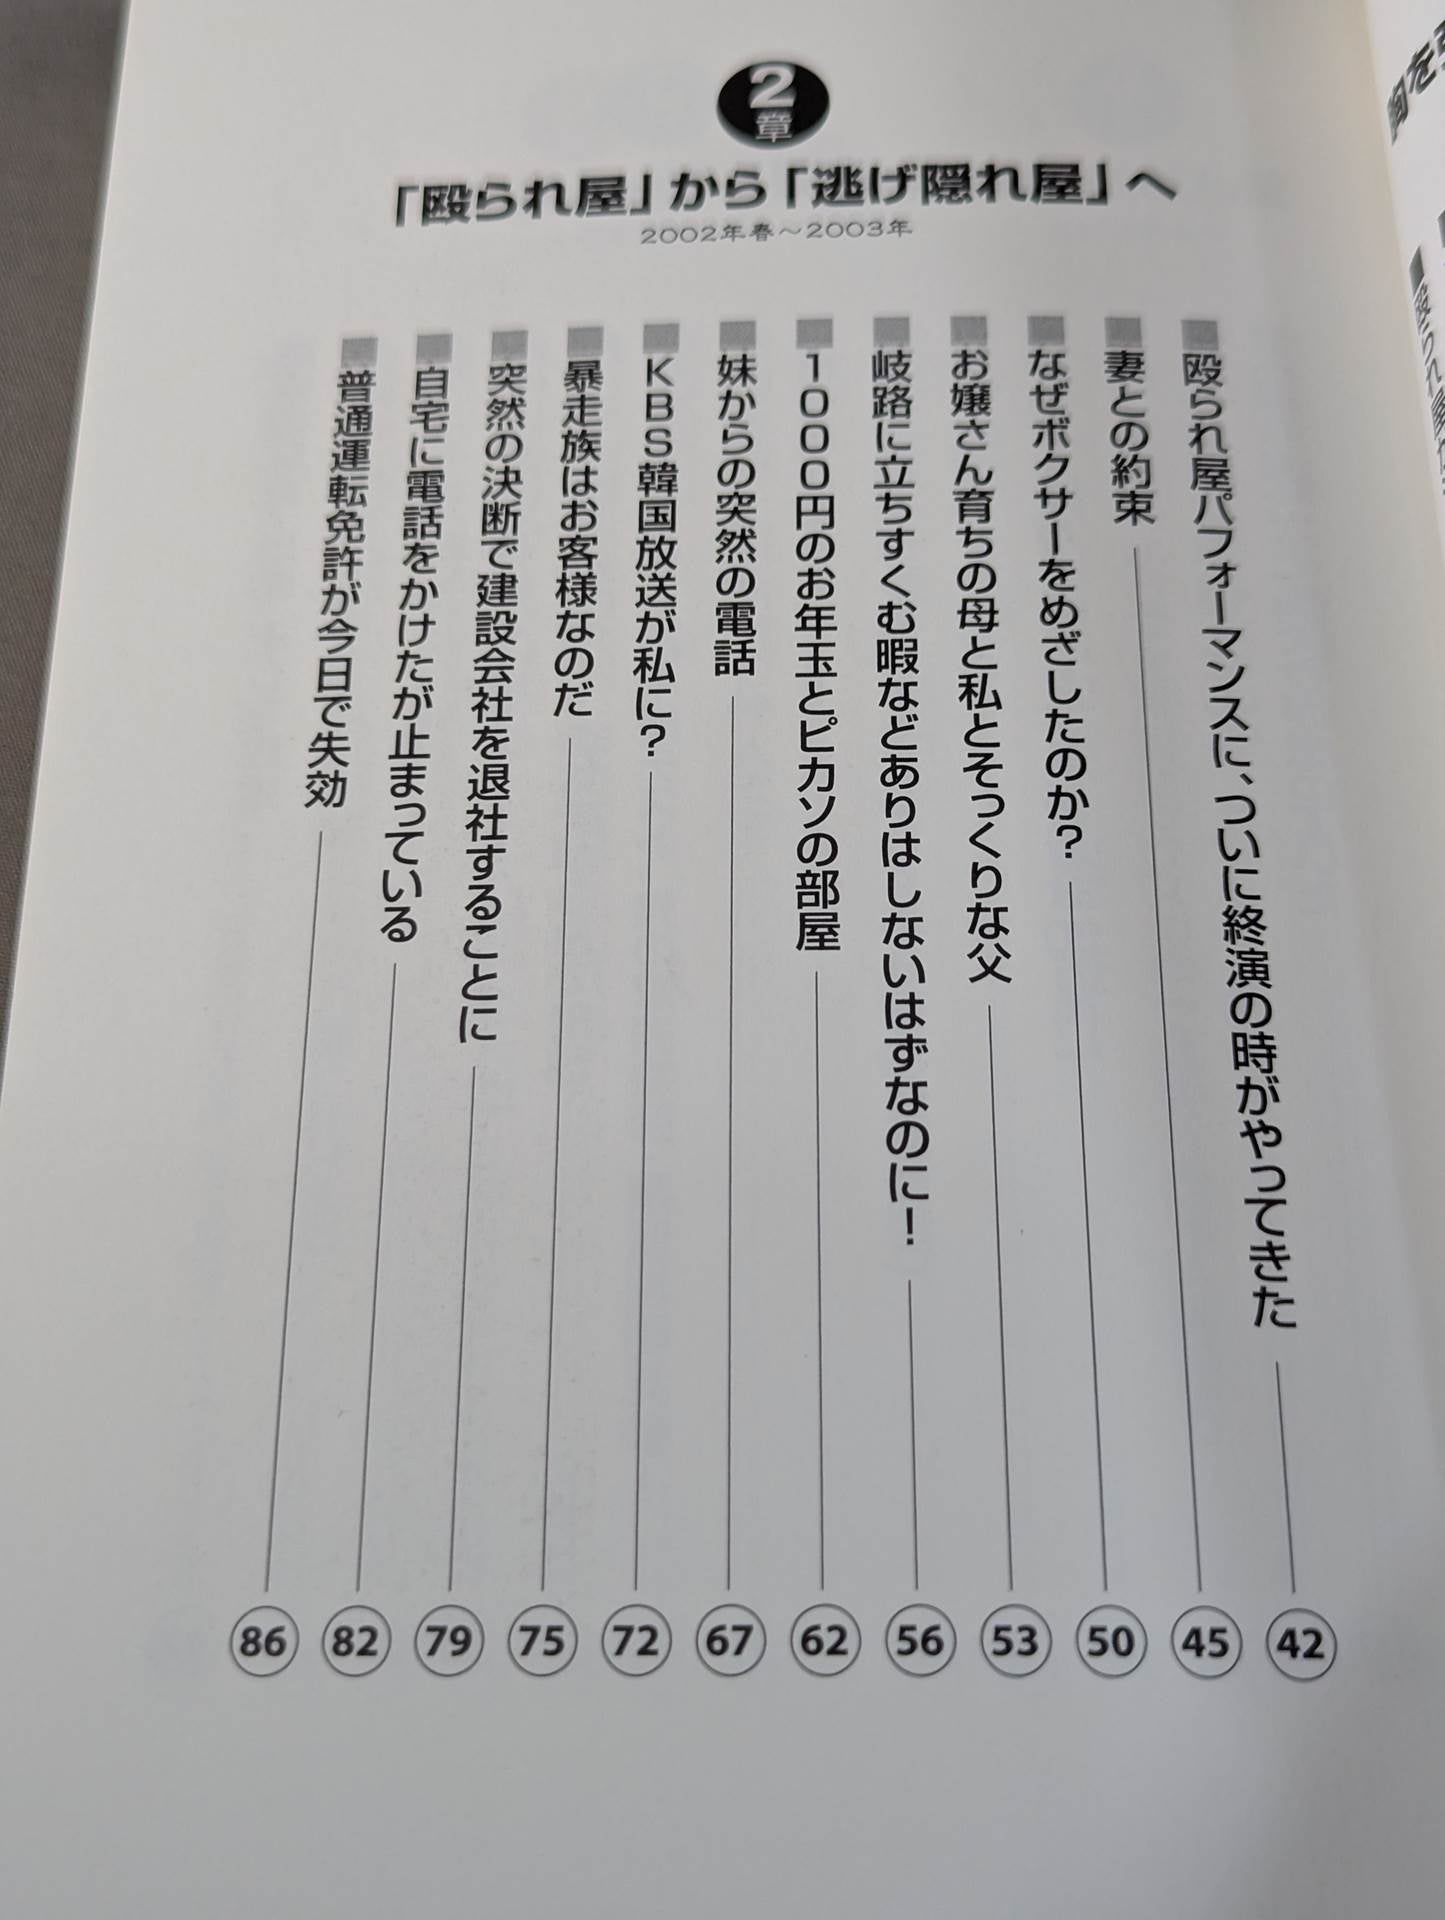 2章
「殴られ屋」から「逃げ隠れ屋」へ
2002年春～2003年
殴られ屋パフォーマンスに、ついに終演の時がやってきた 42
妻との約束 45
なぜボクサーをめざしたのか？ 50
お嬢さん育ちの母と私とそっくりな父 53
岐路に立ちすくむ暇などありはしないはずなのに！ 56
1000円のお年玉とピカソの部屋 62
妹からの突然の電話 67
KBS韓国放送が私に？ 72
暴走族はお客様なのだ 75
突然の決断で建設会社を退社することに 79
自宅に電話をかけたが止まっている 82
普通運転免許が今日で失効 86